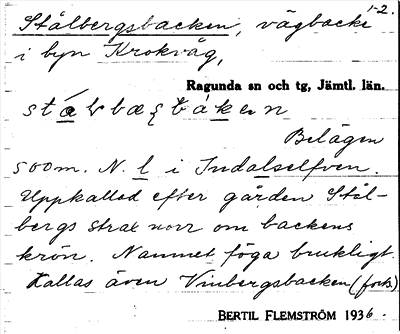 1-2.
Stålbergsbacken, vägbacke
i byn Krokvåg,
Ragunda sn och tg, Jämtl. län.
Belägen
500m. N. l i Indalselfven.
Uppkallad efter gården Stål-
bergs strax norr om backens
krön. Namnet föga brukligt.
Kallas även Vinbergsbacken (forts)
BERTIL FLEMSTRÖM 1936.